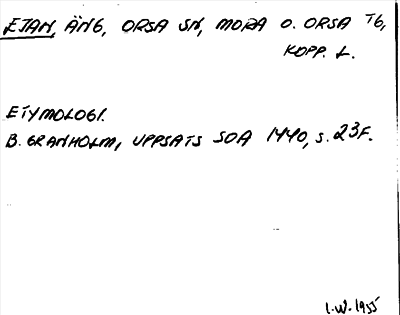 EJAN, ÄNG, ORSA SN, MORA O. ORSA TG,
KOPP. L.
ETYMOLOGI.
B. GRANHOLM, UPPSATS SOA 1440, S. 23F.
I.W. 1955